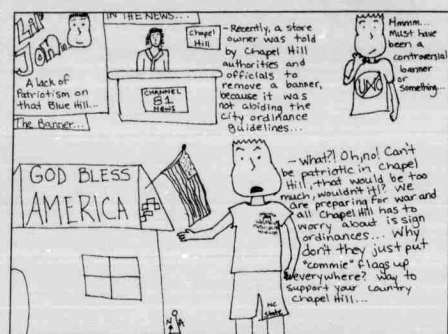 Lil'
John in
A lack of
Patriotism on
that Blue Hill...
The Banner...
IN THE NEWS...
Chapel
Hill
CHANNEL
81
NEWS
-Recently, a store
owner was told
by Chapel Hill
authorities and
officials to
remove a banner,
because it was
not abiding the
city ordinance
guidelines...
Hmmm...
Must have
been a
controversial
banner
or
something...
UNC
GOD BLESS
AMERICA
-What?! Oh, no! Can't
be patriotic in chapel
Hill, that would be too
much, wouldn't it? We
are preparing for war and
all Chapel Hill has to
worry about is sign
ordinances... Why
don't they just put
"commie" flags up
everywhere? Way to
support your country
Chapel Hill...
NC
State